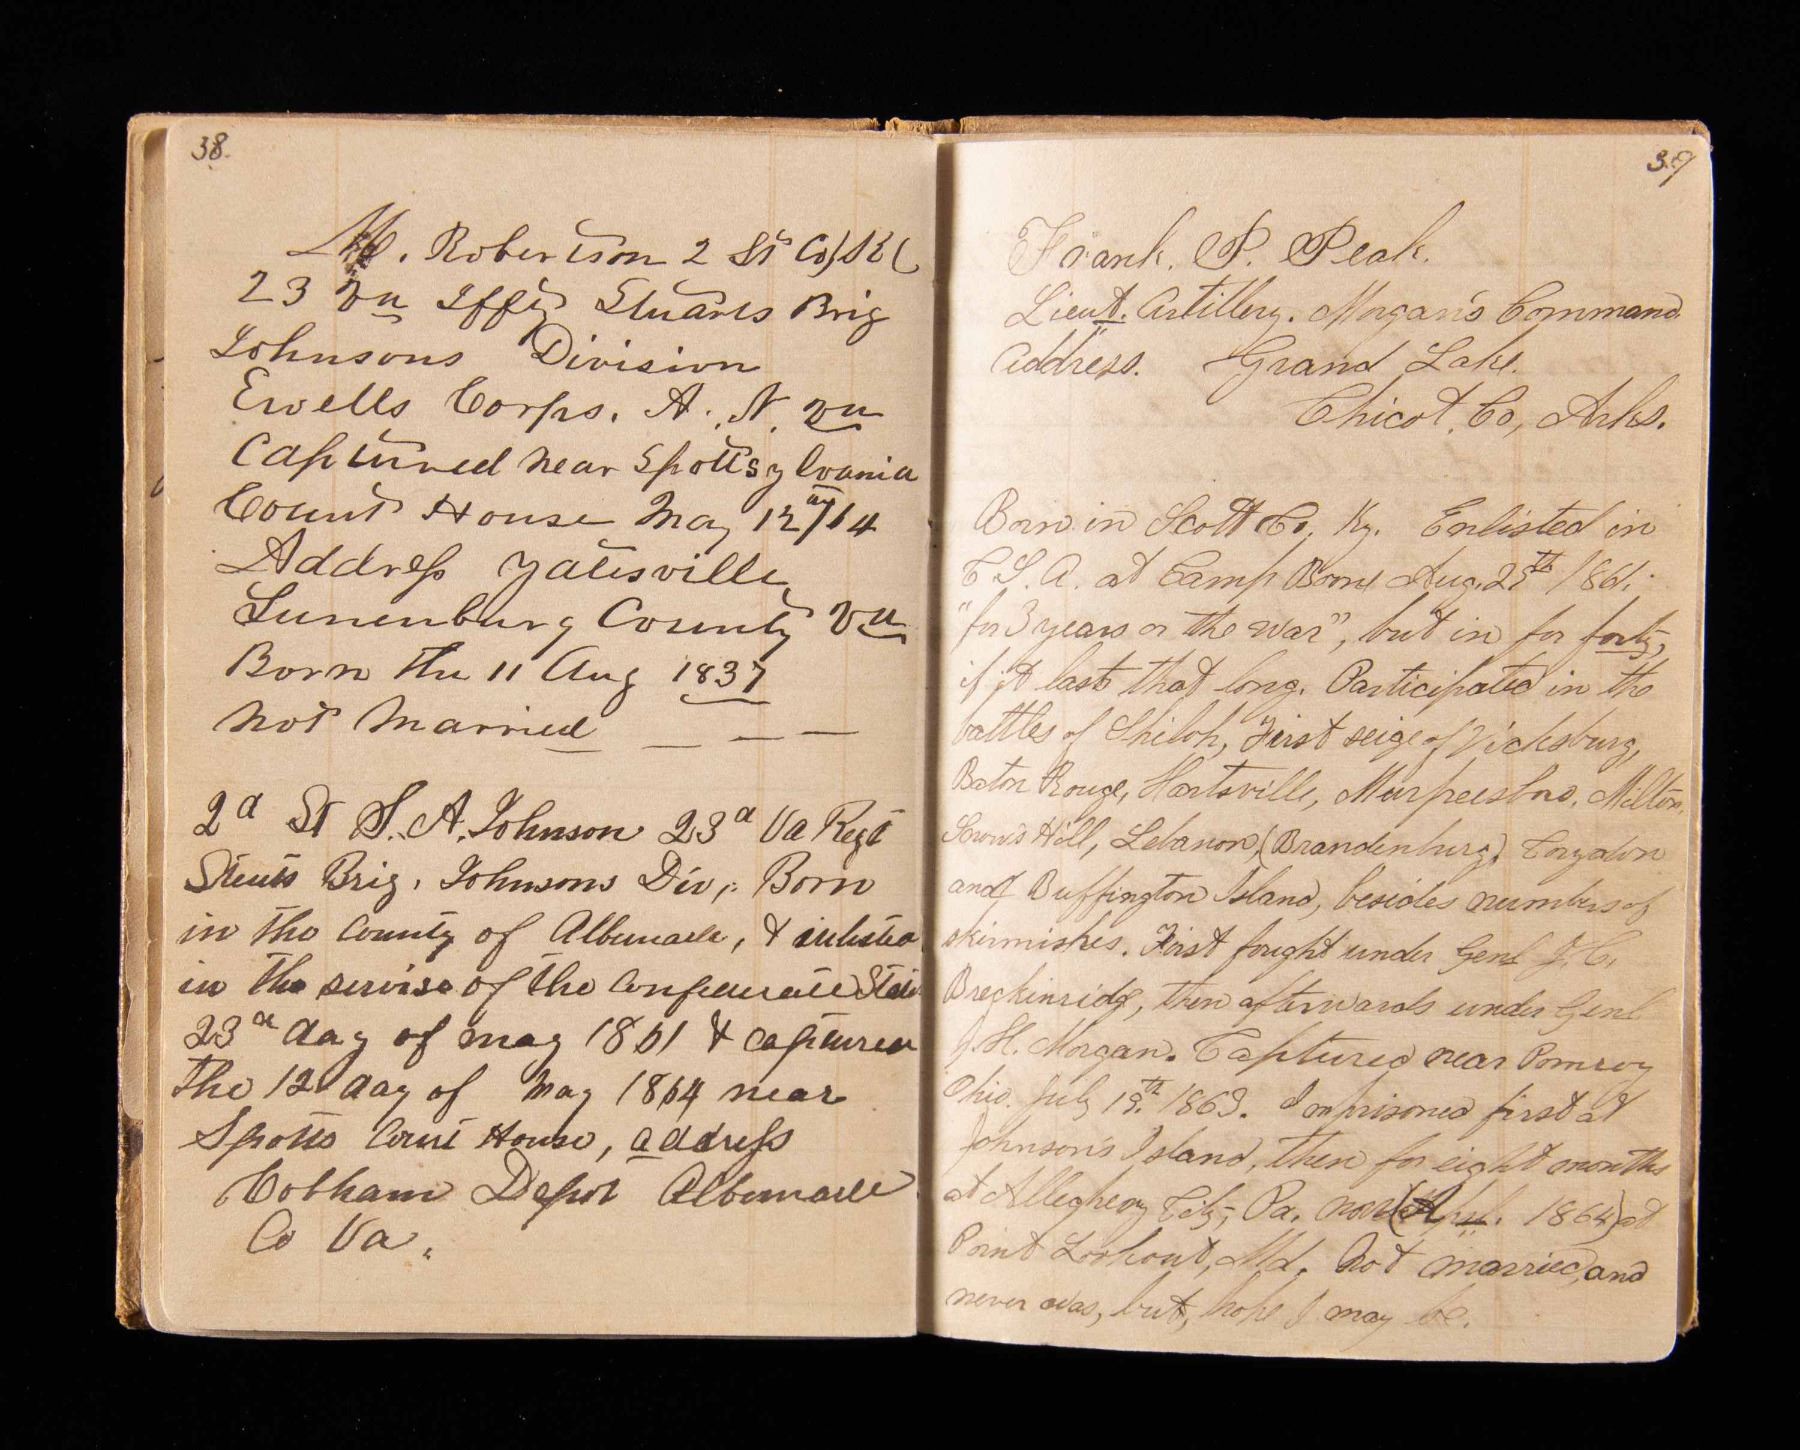 38.
M. Robertson 2 Lt Co K
23 Va Iffty Stuarts Brig
Johnsons Division
Ewells Corps. A. N. Va
Captured near Spottsylvania
Court House May 12th/64
Address Yatesville
Lunenburg County Va
Born the 11 Aug 1837
not Married
2d Lt S. A. Johnson 23d Va Regt
Steuts Brig, Johnsons Div, Born
in the County of Albemarle, & inlisted
in the servise of the Confederate State
23d day of may 1861 & captured
the 12 day of May 1864 near
Spotts Court House, address
Cobham Depot Albemarle
Co Va.
39
Frank. P. Peak.
Lieut. Artillery. Morgan's Command.
Address. Grand Lake.
Chicot. Co, Arks.
Born in Scott Co, Ky. Enlisted in
C.S.A. at Camp Boone Aug. 25th 1861.
"for 3 years or the war", but in for forty,
if it lasts that long. Participated in the
battles of Shiloh, First seige of Vicksburg,
Baton Rouge, Hartsville, Murfreesboro, Milton,
Snow's Hill, Lebanon, (Brandenburg) Corydon
and Buffington Island, besides numbers of
skirmishes. First fought under Genl J.C.
Breckinridge, then afterwards under Genl
J.H. Morgan. Captured near Pomroy
Ohio. July 19th 1863. Imprisoned first at
Johnson's Island, then for eight months
at Allegheny City, Pa. now (Apl. 1864) at
Point Lookout, Md. Not married, and
never was, but, hope I may be.